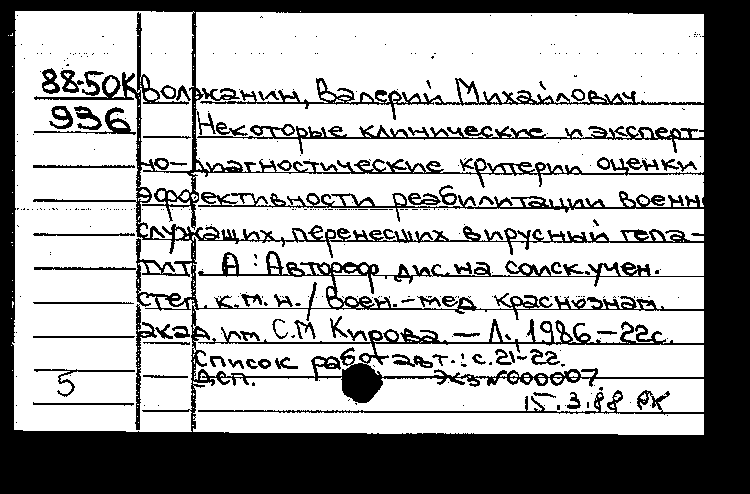 88-50К Волжанин, Валерий Михайлович.
936 Некоторые клинические и эксперт-
но-диагностические критерии оценки
эффективности реабилитации военно
служащих, перенесших вирусный гепа-
тит. А : Автореф. дис. на соиск. учен.
степ. к.м.н. / Воен.-мед. краснознам.
акад. им. С.М Кирова. — Л., 1986. — 22с.
Список работ авт.: с. 21-22.
5 Деп. экз № 000007
15.3.88 РК